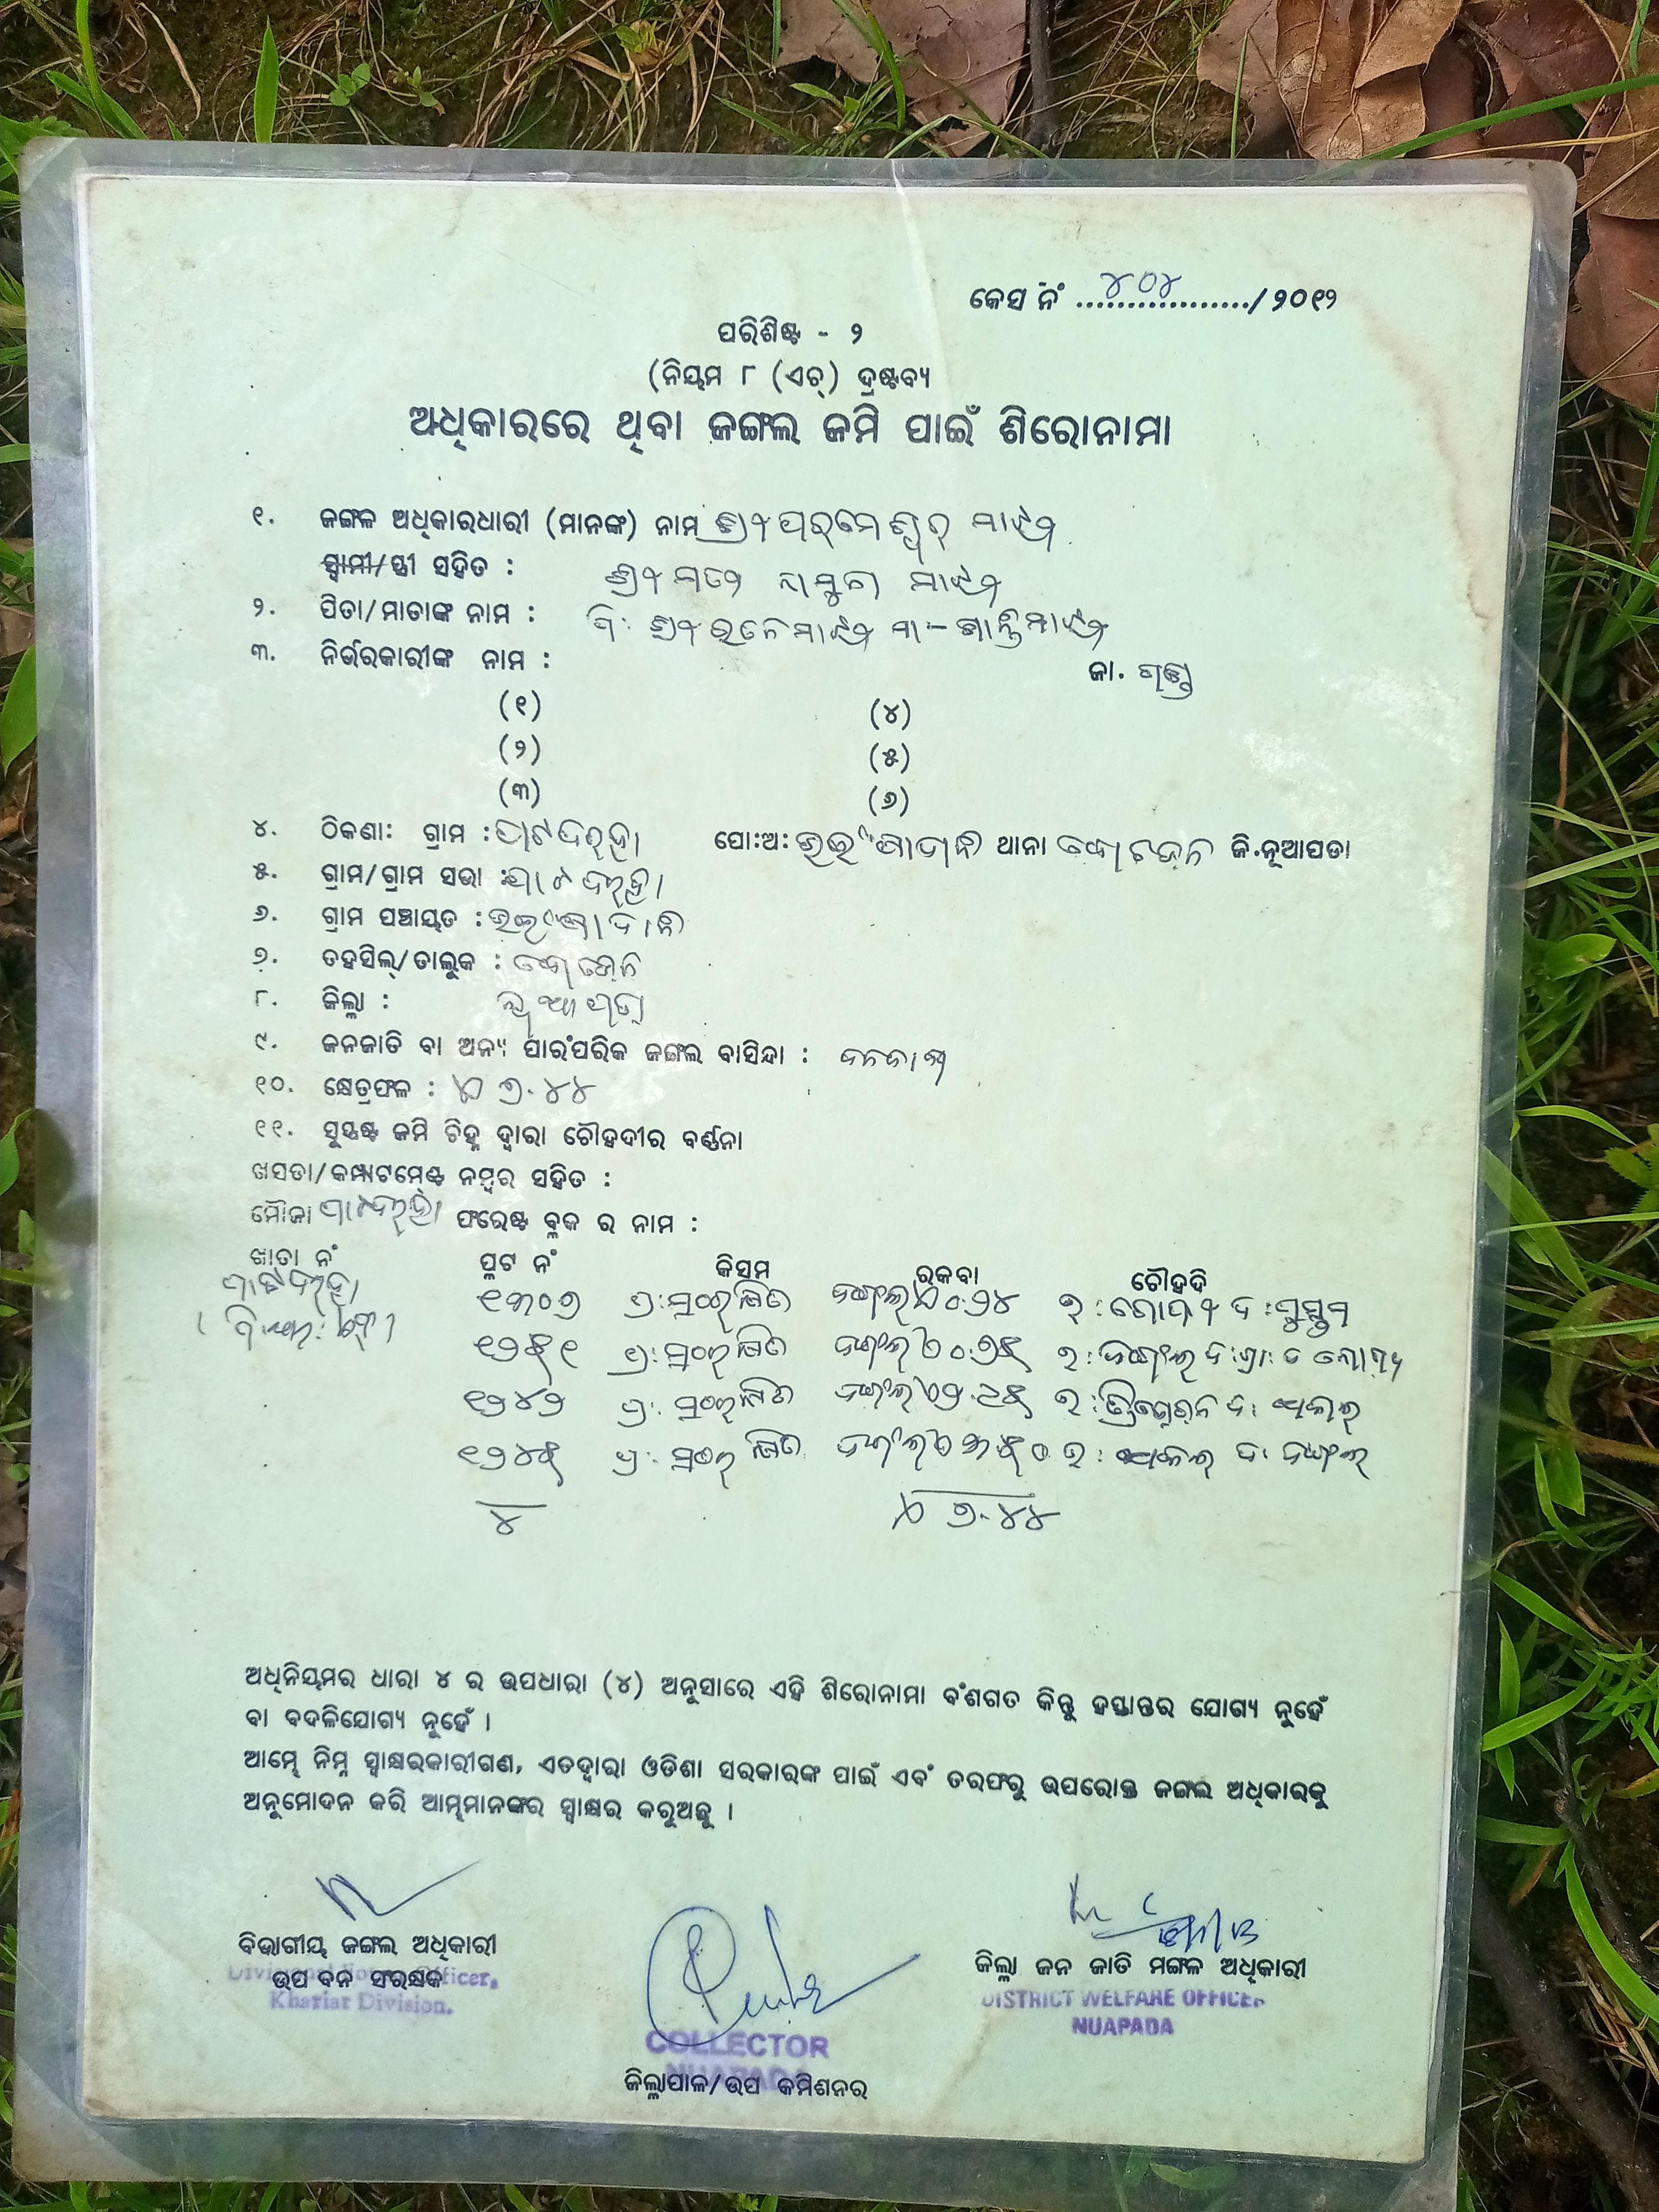 କେସ ନଂ ୪୦୪ /୨୦୧୨
ପରିଶିଷ୍ଟ - ୨
(ନିୟମ ୮ (ଏଚ୍) ଦ୍ରଷ୍ଟବ୍ୟ
ଅଧିକାରରେ ଥିବା ଜଙ୍ଗଲ ଜମି ପାଇଁ ଶିରୋନାମା
୧. ଜଙ୍ଗଳ ଅଧିକାରଧାରୀ (ମାନଙ୍କ) ନାମ ଶ୍ରୀ ପରମେଶ୍ୱର ମାଝୀ
ସ୍ୱାମୀ/ସ୍ତ୍ରୀ ସହିତ : ଶ୍ରୀମତୀ ମାଝୀ
୨. ପିତା/ମାତାଙ୍କ ନାମ : ପି: ଶ୍ରୀ ମାଝୀ ମା-ଶାନ୍ତି ମାଝୀ
୩. ନିର୍ଭରକାରୀଙ୍କ ନାମ : ଜା. ଗଣ୍ଡ
(୧) (୪)
(୨) (୫)
(୩) (୬)
୪. ଠିକଣା: ଗ୍ରାମ : ପାଟଦରହା ପୋ:ଅ: ଭଇଁଷାଦାନି ଥାନା ଜି.ନୂଆପଡା
୫. ଗ୍ରାମ/ଗ୍ରାମ ସଭା : ପାଟଦରହା
୬. ଗ୍ରାମ ପଞ୍ଚାୟତ : ଭଇଁଷାଦାନି
୭. ତହସିଲ୍/ତାଲୁକ :
୮. ଜିଲ୍ଲା : ନୂଆପଡା
୯. ଜନଜାତି ବା ଅନ୍ୟ ପାରଂପରିକ ଜଙ୍ଗଲ ବାସିନ୍ଦା : ଜନଜାତି
୧୦. କ୍ଷେତ୍ରଫଳ : ଏ ୭.୪୪
୧୧. ସୁସ୍ପଷ୍ଟ ଜମି ଚିହ୍ନ ଦ୍ୱାରା ଚୌହଦୀର ବର୍ଣ୍ଣନା
ଖସଡା/କମ୍ପାଟମେଣ୍ଟ ନମ୍ବର ସହିତ :
ମୌଜା ପାଟଦରହା ଫରେଷ୍ଟ ବ୍ଳକ ର ନାମ :
ଖାତା ନଂ ପ୍ଲଟ ନଂ କିସମ ରକବା ଚୌହଦି
ପାଟଦରହା ୧୩୦୭ ପ୍ର: ସଂରକ୍ଷିତ ଜଙ୍ଗଲ ଏ ୦.୨୪
୧୨୫୧ ପ୍ର: ସଂରକ୍ଷିତ ଜଙ୍ଗଲ ଏ ୦.୭୫ ଉ: ଜଙ୍ଗଲ
୧୨୪୨ ପ୍ର: ସଂରକ୍ଷିତ ଜଙ୍ଗଲ ଏ ୨.୯୫
୧୨୪୫ ପ୍ର: ସଂରକ୍ଷିତ ଜଙ୍ଗଲ ଏ ୩.୫୦ ଦ: ଜଙ୍ଗଲ
୪ ଏ ୭.୪୪
ଅଧିନିୟମର ଧାରା ୪ ର ଉପଧାରା (୪) ଅନୁସାରେ ଏହି ଶିରୋନାମା ବଂଶଗତ କିନ୍ତୁ ହସ୍ତାନ୍ତର ଯୋଗ୍ୟ ନୁହେଁ
ବା ବଦଳିଯୋଗ୍ୟ ନୁହେଁ ।
ଆମ୍ଭେ ନିମ୍ନ ସ୍ୱାକ୍ଷରକାରୀଗଣ, ଏତଦ୍ୱାରା ଓଡିଶା ସରକାରଙ୍କ ପାଇଁ ଏବଂ ତରଫରୁ ଉପରୋକ୍ତ ଜଙ୍ଗଲ ଅଧିକାରକୁ
ଅନୁମୋଦନ କରି ଆମ୍ଭମାନଙ୍କର ସ୍ୱାକ୍ଷର କରୁଅଛୁ ।
ବିଭାଗୀୟ ଜଙ୍ଗଲ ଅଧିକାରୀ
ଉପ ବନ ସଂରକ୍ଷକ
Divisional Forest Officer,
Khariar Division.
COLLECTOR
NUAPADA
ଜିଲ୍ଲାପାଳ/ଉପ କମିଶନର
ଜିଲ୍ଲା ଜନ ଜାତି ମଙ୍ଗଳ ଅଧିକାରୀ
DISTRICT WELFARE OFFICER
NUAPADA